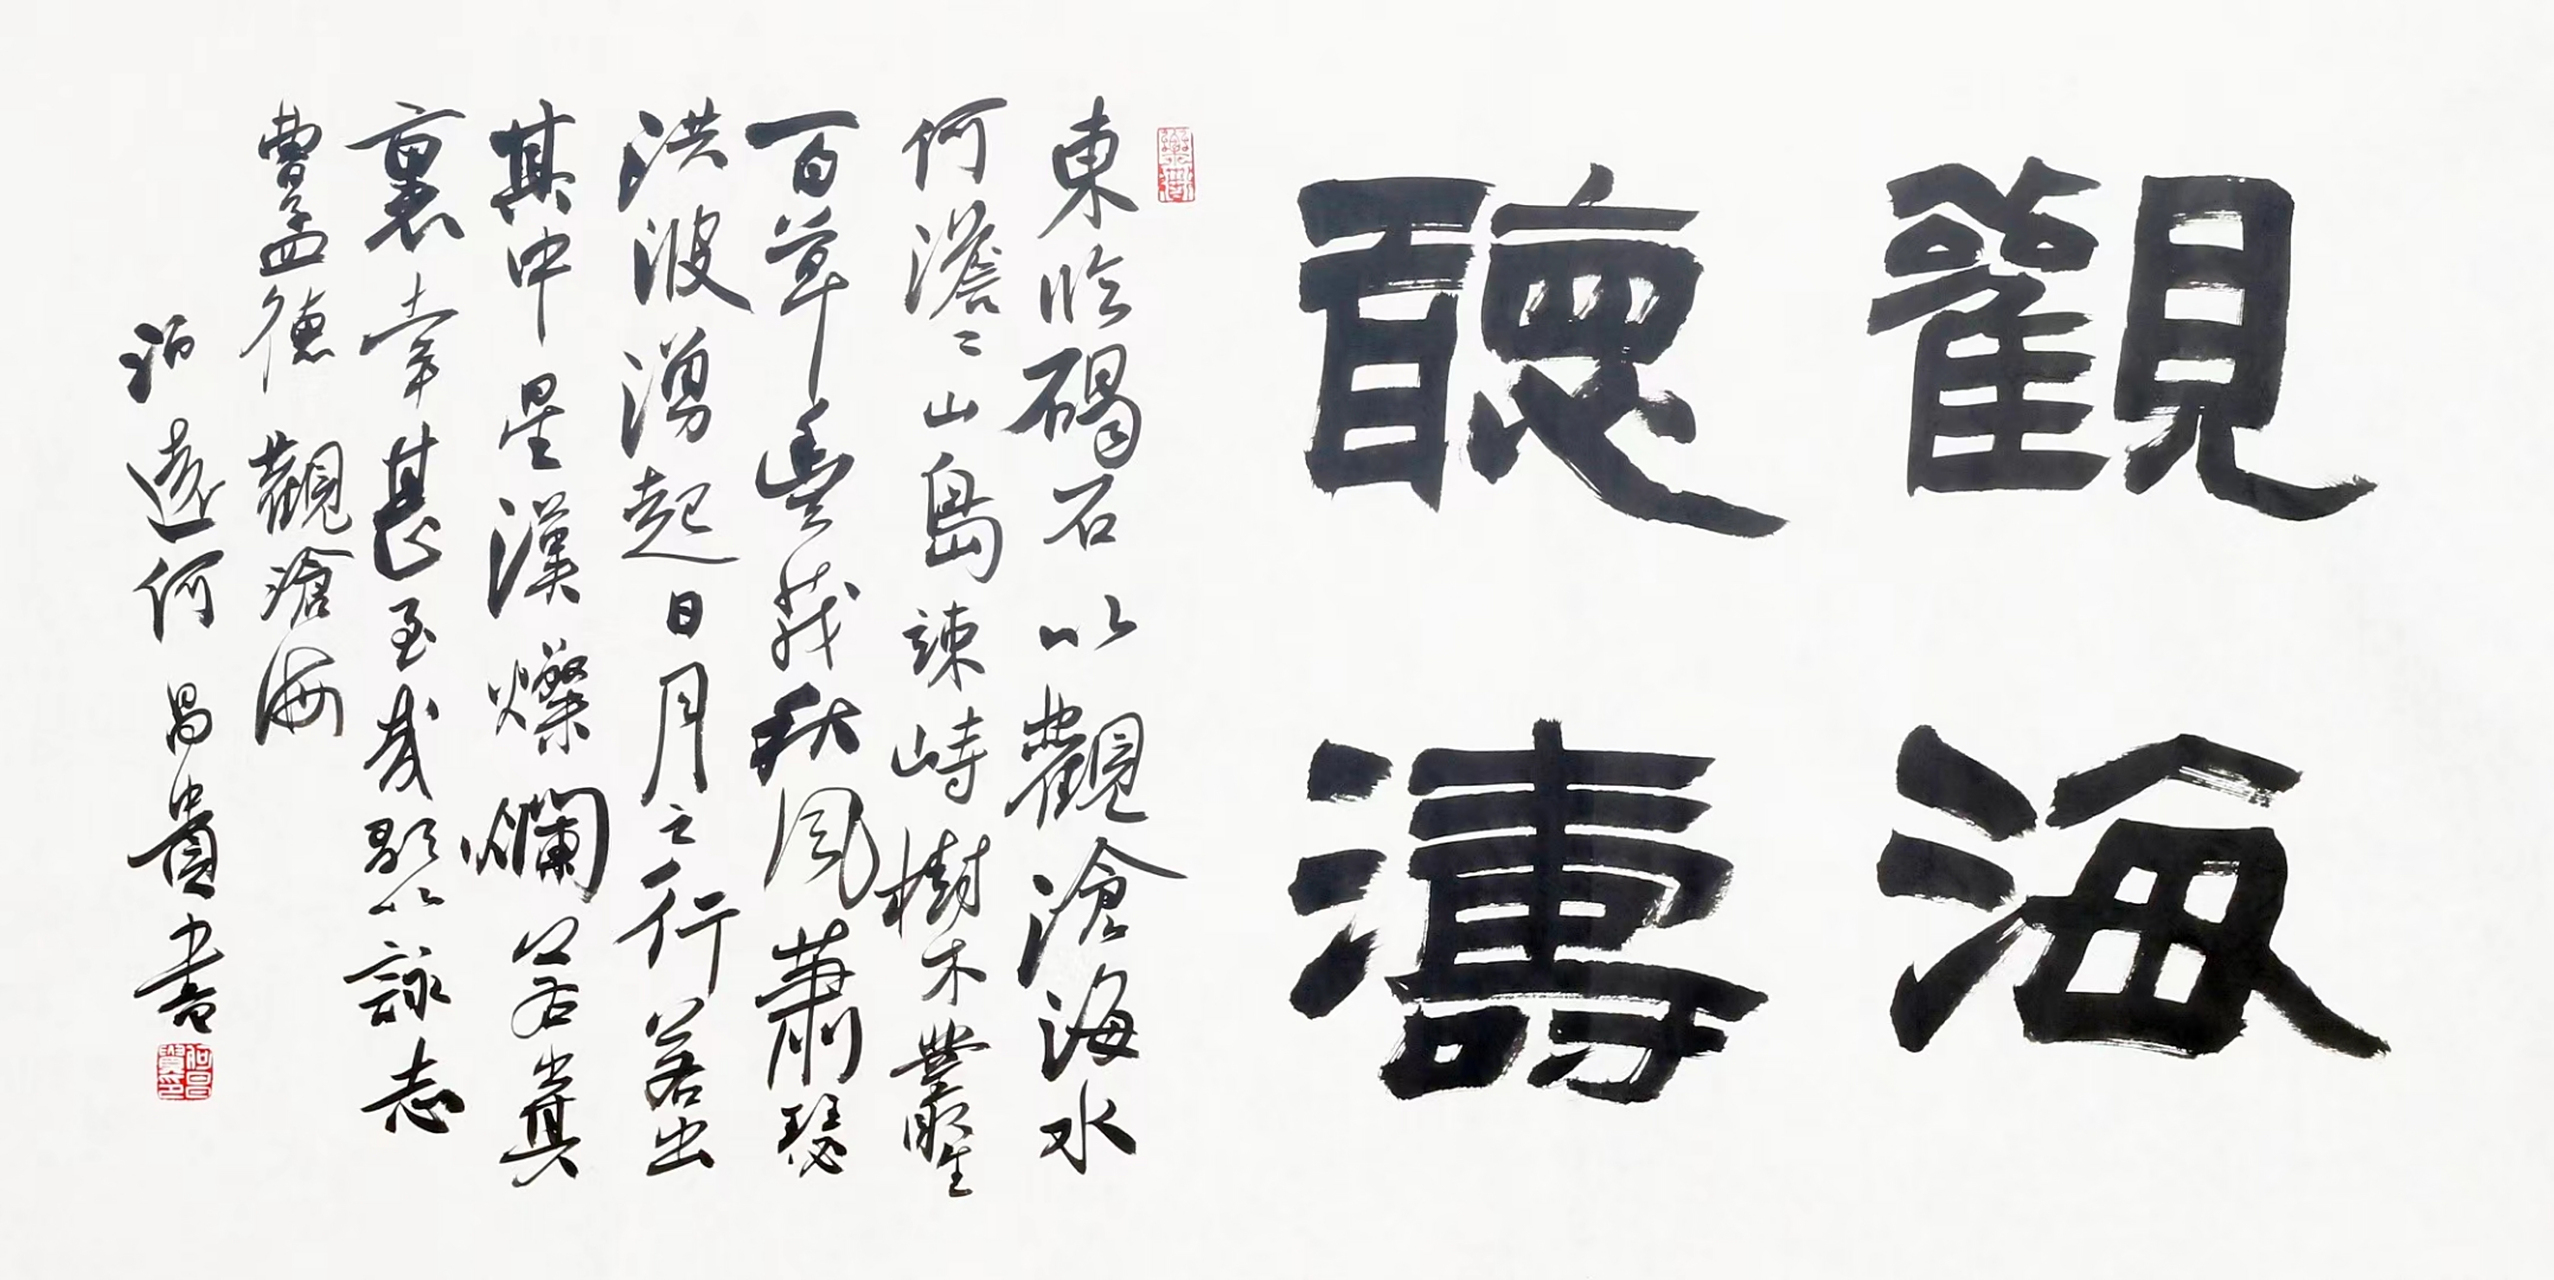 觀海
聽濤
東臨碣石以觀滄海水
何澹〻山島竦峙樹木叢生
百草豐茂秋風蕭瑟
洪波湧起日月之行若出
其中星漢燦爛若出其
裏幸甚至哉歌以詠志
曹孟德觀滄海
泊遠何昌貴書
何昌貴印